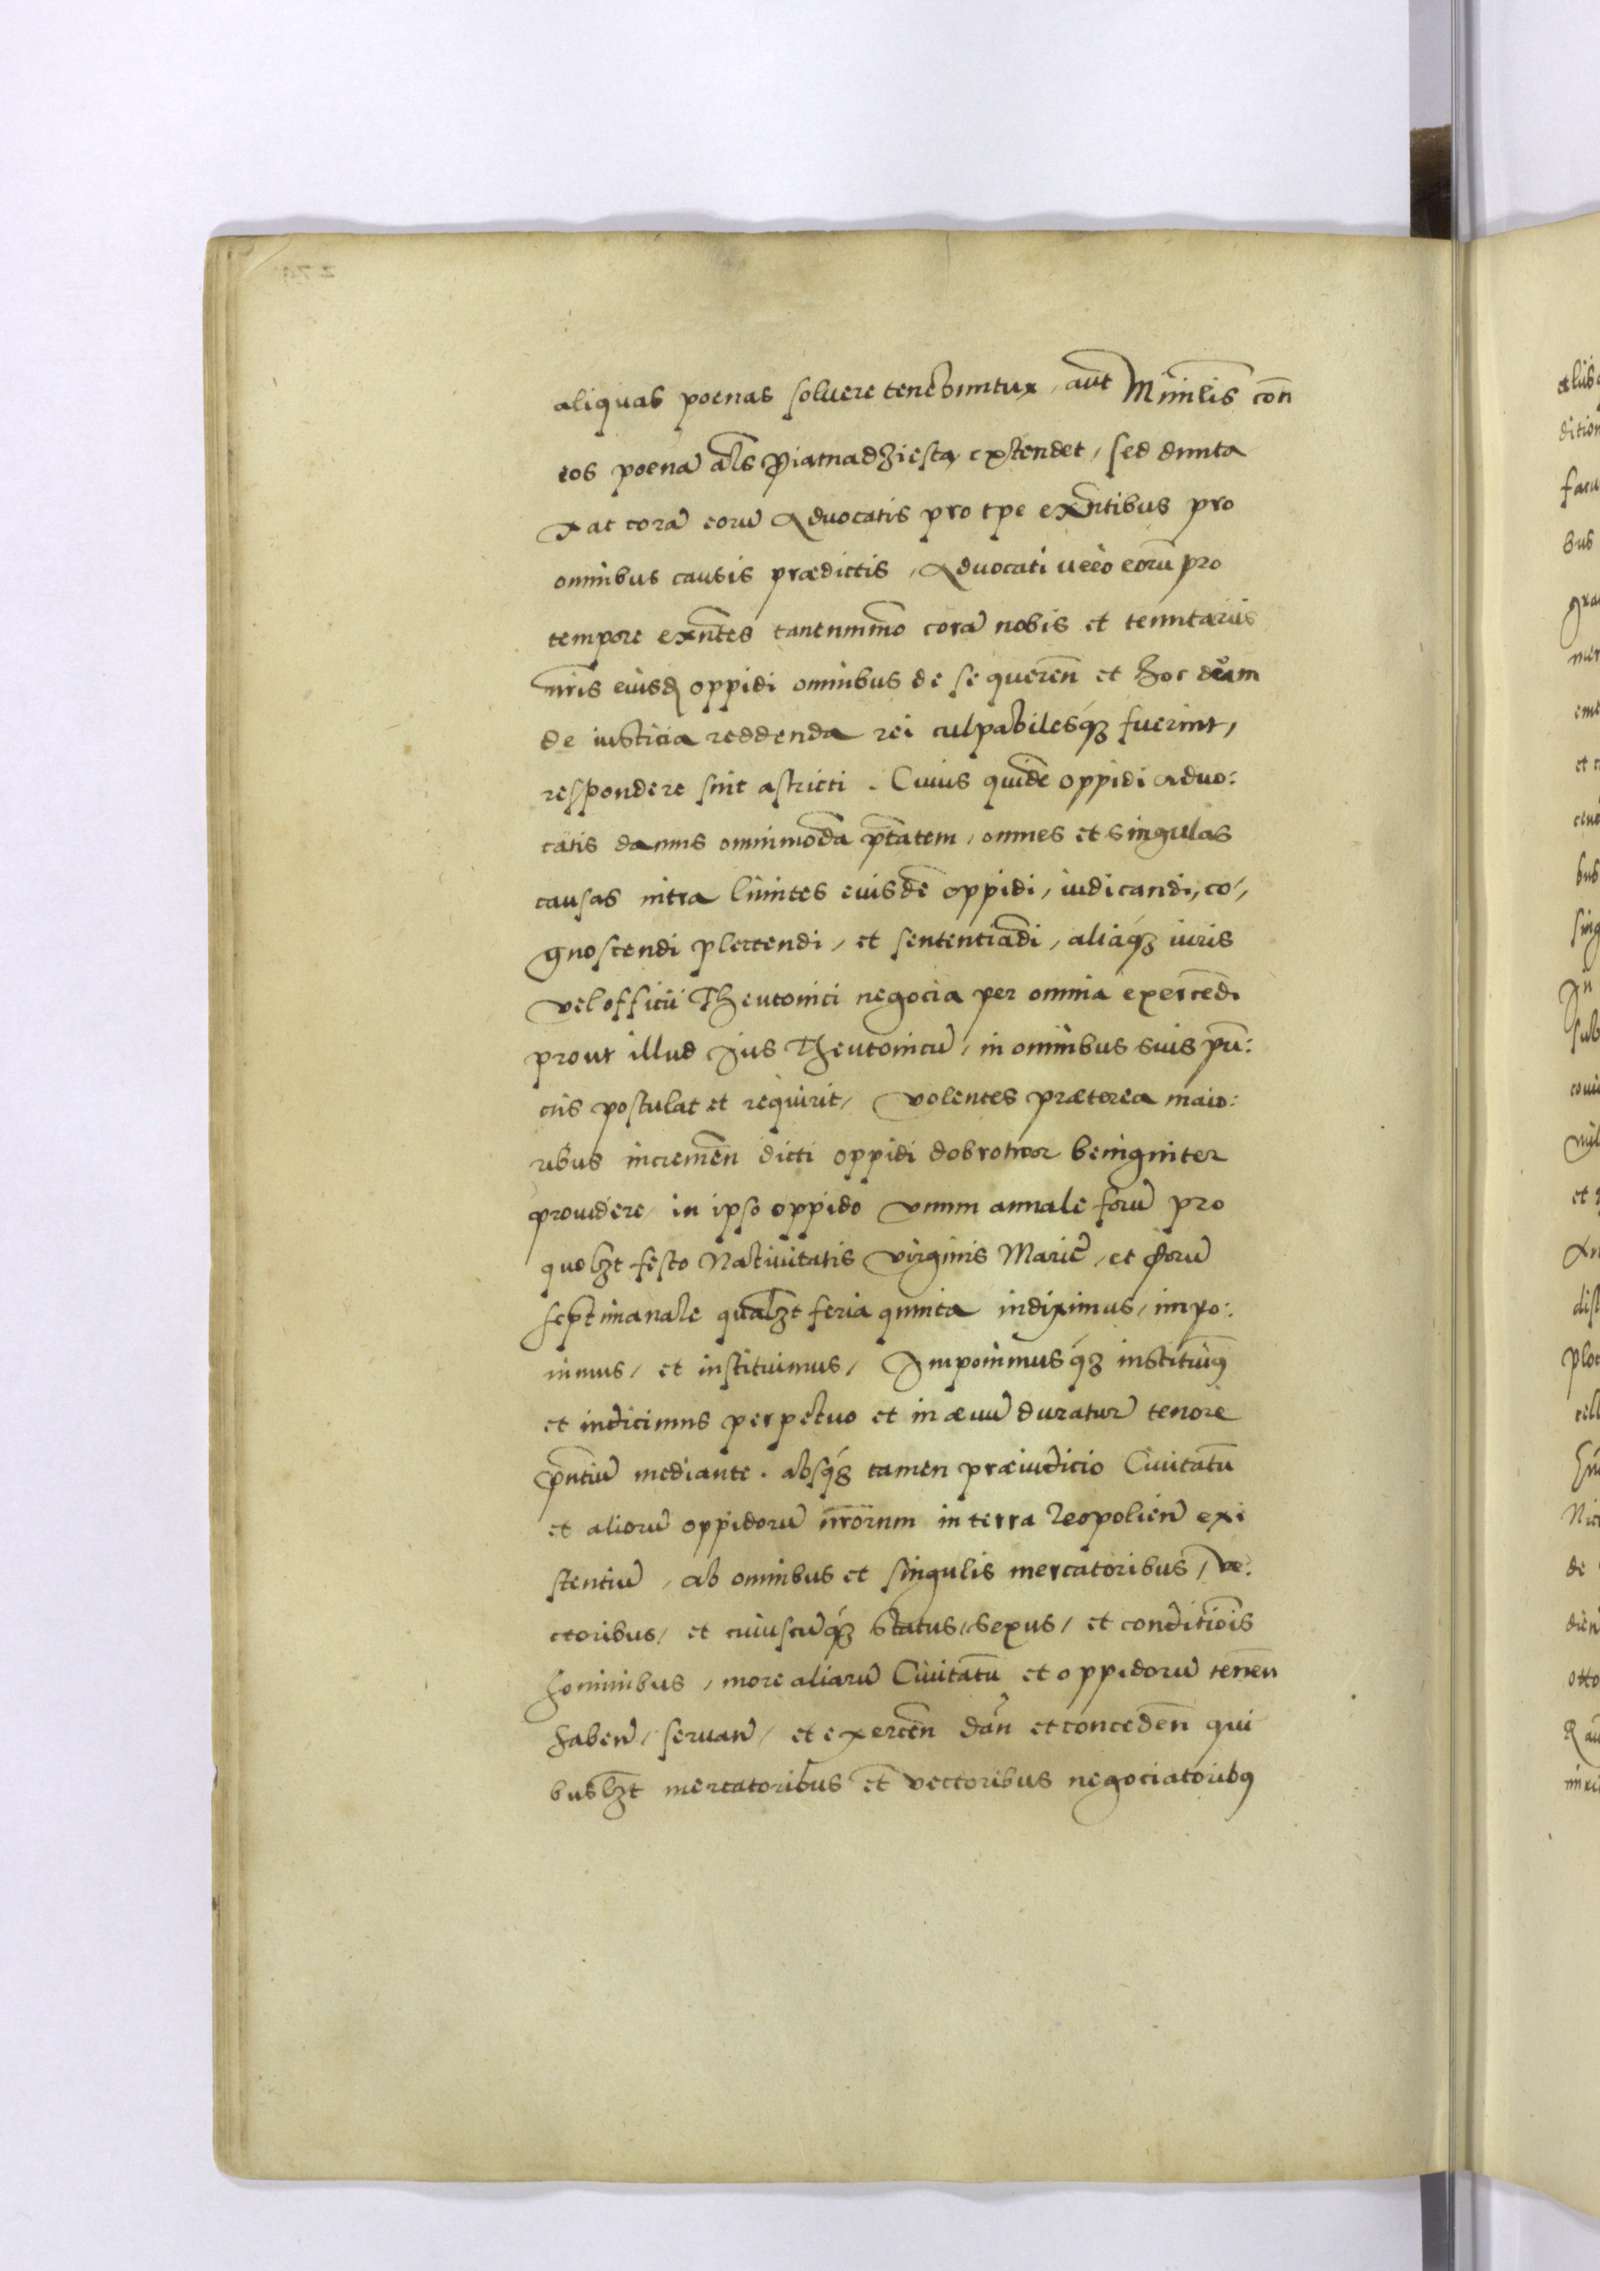 aliquas poenas soluere tenebuntur, aut Minlis con
eos poenã als Piatnadziesta extendet, sed dunta
xat corã eorũ Aduocatis pro tpe exñtibus pro
omnibus causis prædictis, Aduocati uero eorũ pro
tempore exñtes tanenimmo corã nobis et tenutariis
nris eiusd oppidi omnibus de se querẽn et hoc dum
de iusticia reddenda rei culpabilesq3 fuerint,
respondere sint astricti. Cuius quidẽ oppidi aduo:
catis damus omnimodã ptãtem, omnes et singulas
causas intra limites eiusdẽ oppidi, iudicandi, co,
gnoscendi plectendi, et sententiãdi, aliaq3 iuris
vel officii Theutonici negocia per omnia exercẽdi
prout illud Jus Theutonicũ, in omnibus suis pũ:
ctis postulat et requirit, volentes præterea maio:
ribus incremẽn dicti oppidi dobrotwor benigniter
prouidere, in ipso oppido vnum annale forũ pro
quolz̃t festo Natiuitatis virginis Marie, et forũ
septimanale qualz̃t feria quinta indiximus, impo:
nimus, et instituimus, Imponimusq3 instituimq
et indicimus perpetuo et in æuũ duraturũ tenore
pñtiũ mediante. absq3 tamen præiudicio Ciuitatũ
et aliorũ oppidorũ nrõrum in terra Leopolieñ exi
stentiũ, ab omnibus et singulis mercatoribus, ve:
ctoribus, et cuiuscũq3 status, sexus, et conditiõis
hominibus, more aliarũ Ciuitatũ et oppidorũ tenẽn
habeñ, seruañ, et exercẽn dañ et concedeñ qui
buslz̃t mercatoribus et vectoribus negociatoribq